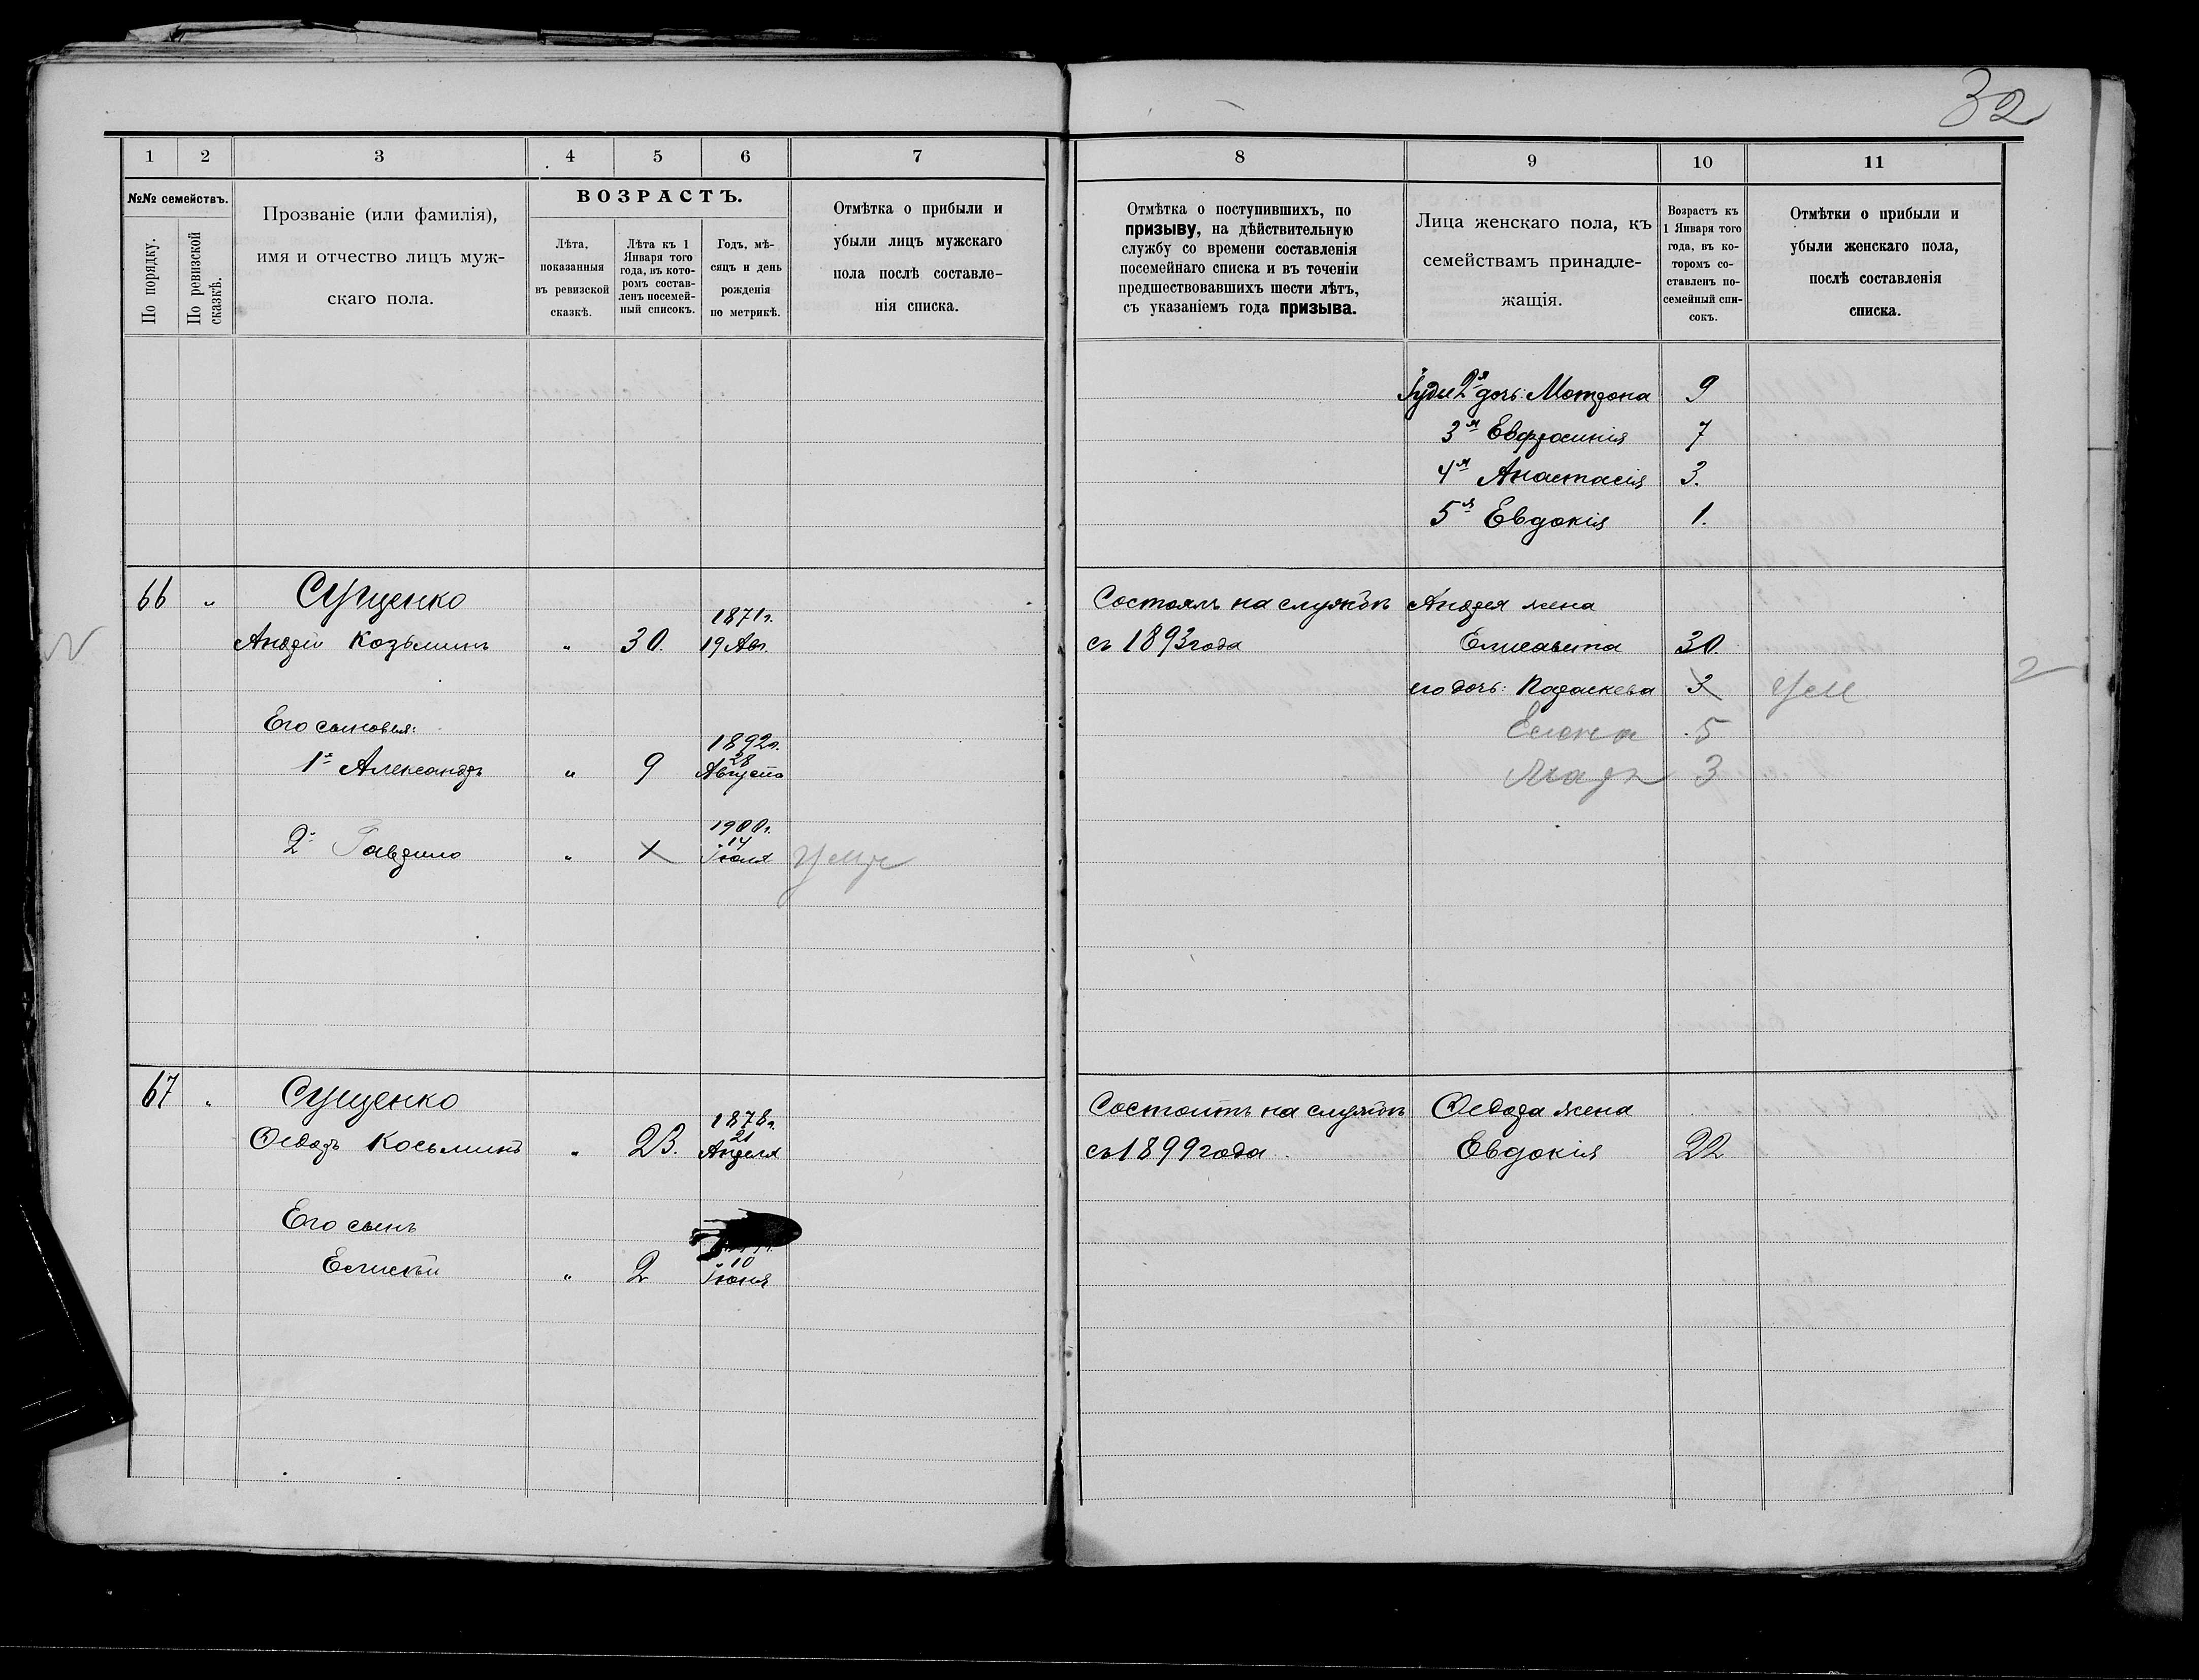 32
1 2 3 4 5 6 7 8 9 10 11
№№ семействъ.
По порядку.
По ревизской сказкѣ.
Прозваніе (или фамилія),
имя и отчество лицъ муж-
скаго пола.
ВОЗРАСТЪ.
Лѣта,
показанныя
въ ревизской
сказкѣ.
Лѣта къ 1
Января того
года, въ кото-
ромъ состав-
ленъ посемей-
ный списокъ.
Годъ, мѣ-
сяцъ и день
рожденія
по метрикѣ.
Отмѣтка о прибыли и
убыли лицъ мужскаго
пола послѣ составле-
нія списка.
Отмѣтка о поступившихъ, по
призыву, на дѣйствительную
службу со времени составленія
посемейнаго списка и въ теченіи
предшествовавшихъ шести лѣтъ,
съ указаніемъ года призыва.
Лица женскаго пола, къ
семействамъ принадле-
жащія.
Возрастъ къ
1 Января того
года, въ ко-
торомъ со-
ставленъ по-
семейный спи-
сокъ.
Отмѣтки о прибыли и
убыли женскаго пола,
послѣ составленія
списка.
2я дочь: Мотрона 9
3я Евфросинія 7
4я Анастасія 3.
5я Евдокія 1.
66 " Сущенко
Андрей Козьминъ " 30. 1871г. 19 Авг.
Состоялъ на службѣ
съ 1893 года
Андрея жена
Елисавета 30.
его дочь: Параскева 3 Ум
Елена 5
3
Его сыновья:
1й Александръ " 9 1892г. 28 Августа
2й Гаврило " 1900г. 14 Іюля Умр
67 " Сущенко
Ѳедоръ Косьминъ " 23. 1878г. 21 Апреля
Состоитъ на службѣ
съ 1899 года
Ѳедора жена
Евдокія 22
Его сынъ
Елисѣй " 2 10 Іюня